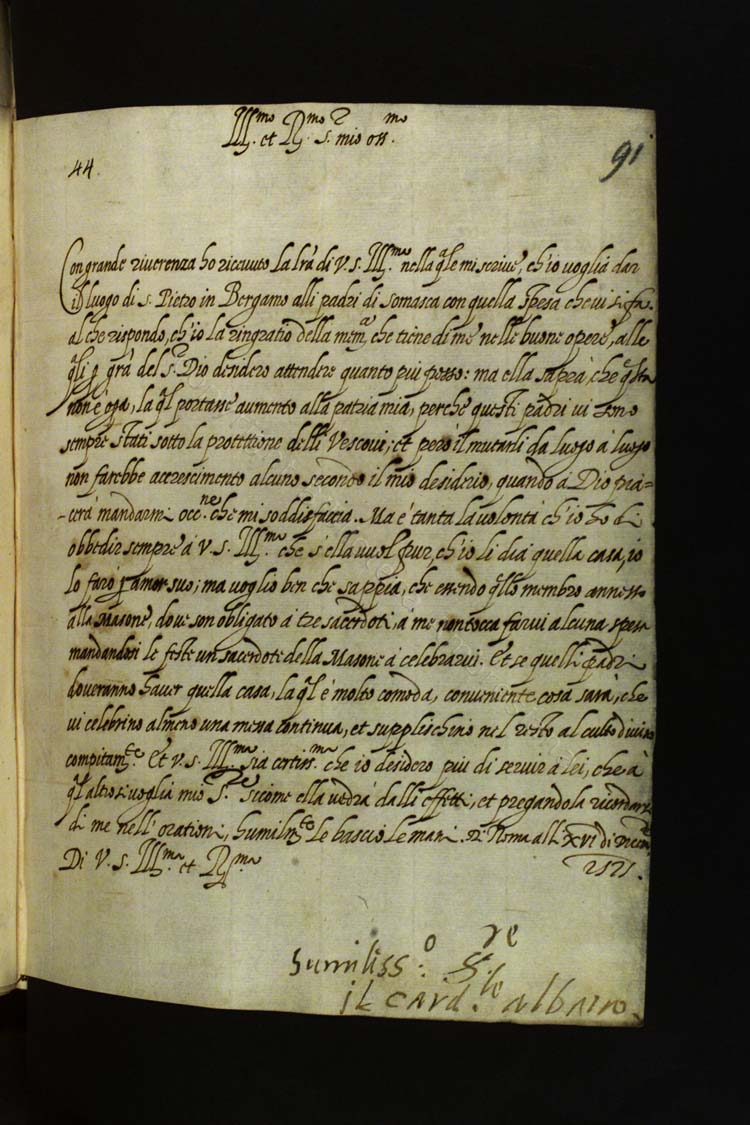 Ill.mo et R.mo S.r mio oss.mo
44
91
Con grande riverenza ho ricevuto la lr̃a di V. S. Ill.ma nella q̃le mi scrive, ch'io voglia dar
il luogo di S. Pietro in Bergamo alli padri di somasca con quella spesa che vi si fa.
al che rispondo, ch'io la ringratio della mem.a che tiene di me nelle buone opere, alle
q̃li p grã del S.r Dio desidero attendere quanto più posso: ma ella saprà, che q̃sta
non è opa, la q̃l portasse aumento alla patria mia, perche questi padri vi sono
sempre stati sotto la protettione delli Vescovi; et però il mutarli da luogo à luogo
non farebbe accrescimento alcuno secondo il mio desiderio, quando à Dio pia-
-cerà mandarmi occ.ne che mi soddisfaccia. Ma è tanta la volontà ch'io ho di
obbedir sempre à V. S. Ill.ma che s'ella vuol pur, ch'io li dia quella casa, io
lo farò p amor suo; ma voglio ben che sappia, che essendo q̃llo membro annesso
alla Masone, dove son obligato à tre sacerdoti, à me non tocca farvi alcuna spesa
mandandosi le feste un sacerdote della Masone à celebrarvi. Et se quelli padri
doveranno haver quella casa, la q̃l è molto comoda, conveniente cosa sarà, che
vi celebrino almeno una messa continua, et supplischino nel resto al culto divino
compitam.te Et V. S. Ill.ma sia certiss.ma che io desidero più di servir à lei, che à
q̃l altro si voglia mio S.re sicome ella vedrà dalli effetti, et pregandola ricordarsi
di me nell'orationi, humilm.te le bascio le mani. Di Roma alli XVI di
Di V. S. Ill.ma et R.ma
humiliss.o S.re
il card.le albano.